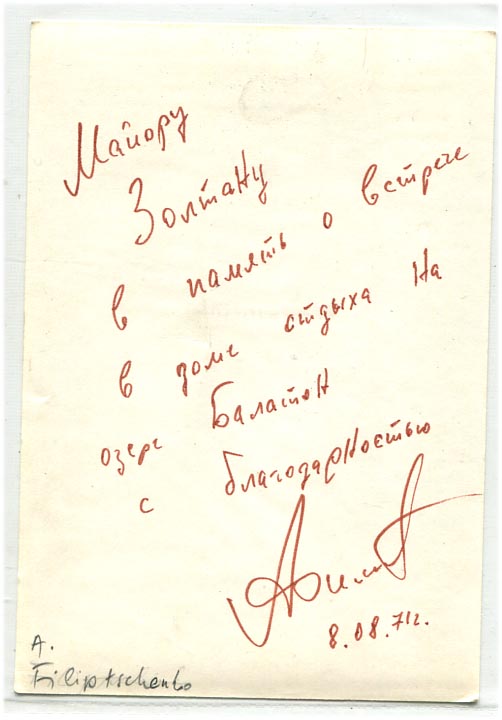 Майору
Золтану
в память о встрече
в доме отдыха на
озере Балатон
с благодарностью
8.08.71г.
A.
Filiptschenko